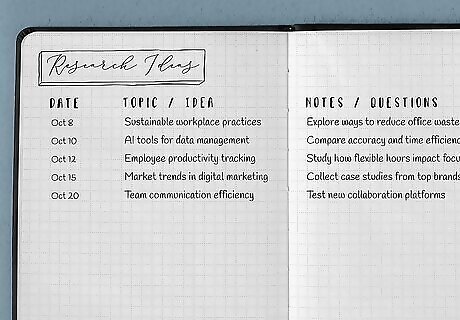 Research Ideas
DATE TOPIC / IDEA NOTES / QUESTIONS
Oct 8 Sustainable workplace practices Explore ways to reduce office waste
Oct 10 AI tools for data management Compare accuracy and time efficienc
Oct 12 Employee productivity tracking Study how flexible hours impact focu
Oct 15 Market trends in digital marketing Collect case studies from top brands
Oct 20 Team communication efficiency Test new collaboration platforms